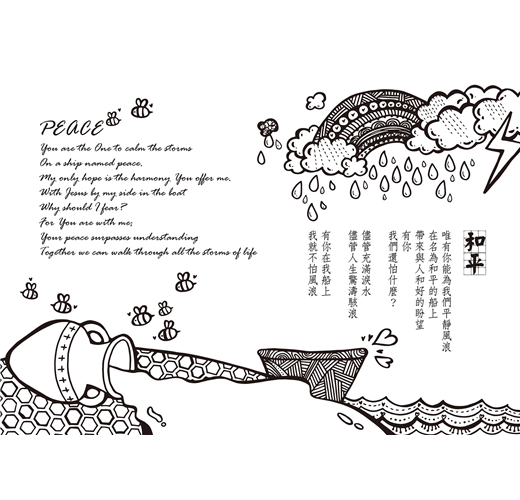 PEACE
You are the One to calm the storms
On a ship named peace.
My only hope is the harmony You offer me.
With Jesus by my side in the boat
Why should I fear?
For You are with me;
Your peace surpasses understanding
Together we can walk through all the storms of life
和平
唯有你能為我們平靜風浪
在名為和平的船上
帶來與人和好的盼望
有你
我們還怕什麼？
儘管充滿淚水
儘管人生驚濤駭浪
有你在我船上
我就不怕風浪